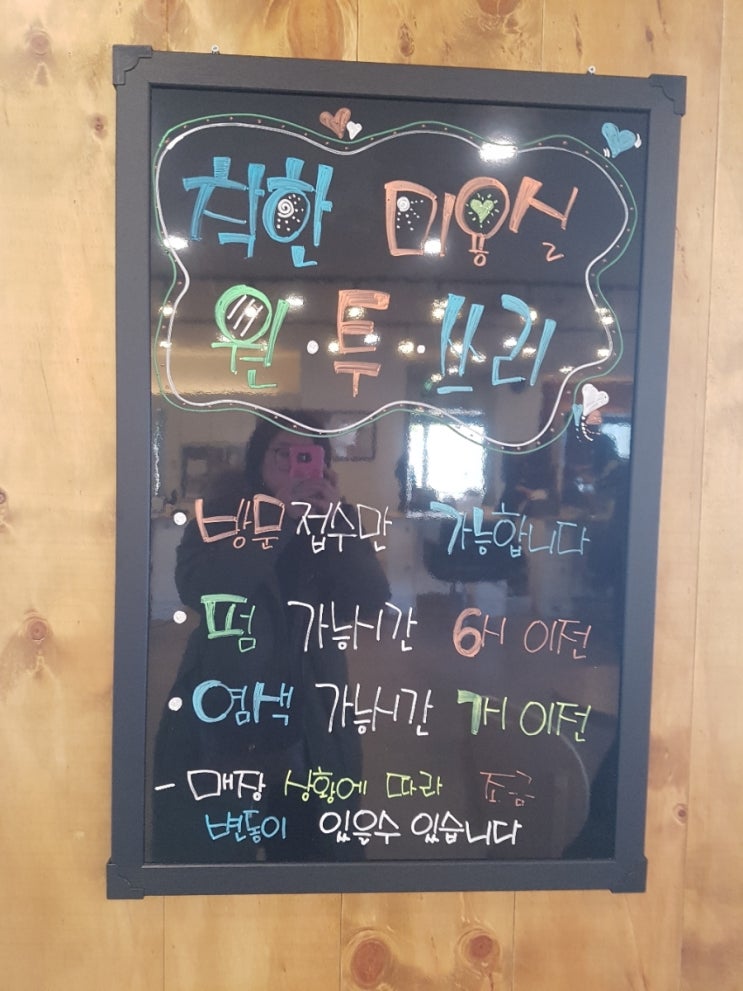 착한 미용실
원·투·쓰리
• 방문접수만 가능합니다
• 펌 가능시간 6시 이전
• 염색 가능시간 7시 이전
- 매장 상황에 따라 조금
변동이 있을수 있습니다